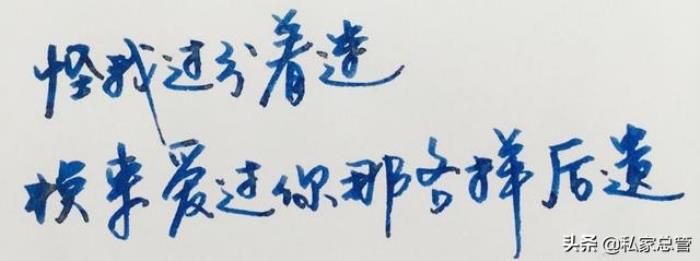 怪我过分着迷
换来爱过你那各样后遗
头条 @私家总管